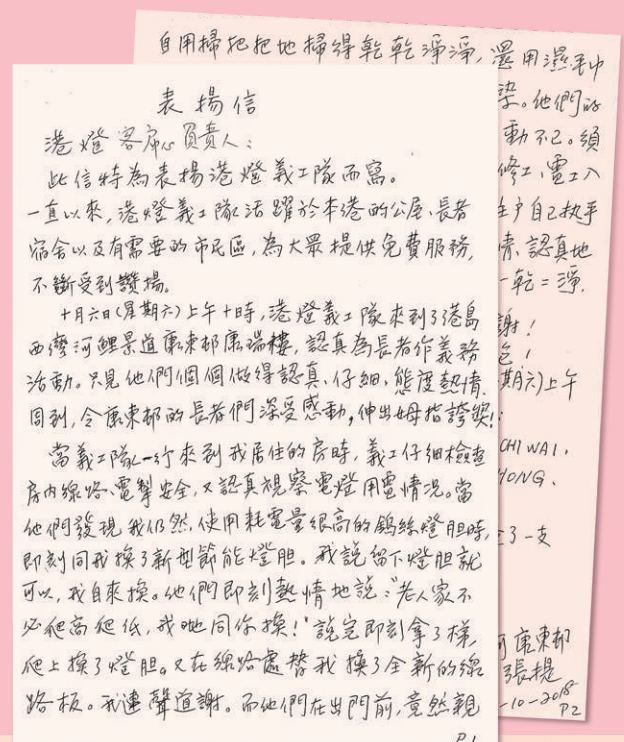 表揚信
港燈客戶心負責人：
此信特為表揚港燈義工隊而寫。
一直以來，港燈義工隊活躍於本港的公屋、長者
宿舍以及有需要的市民區，為大眾提供免費服務，
不斷受到讚揚。
十月六日(星期六)上午十時，港燈義工隊來到了港島
西灣河鯉景道康東邨康瑞樓，認真為長者作義務
活動。只見他們個個做得認真、仔細、態度熱情
周到，令康東邨的長者們深受感動，伸出姆指誇獎！
當義工隊一行來到我居住的房時，義工仔細檢查
房內線路、電掣安全，又認真視察電燈用電情況。當
他們發現我仍然使用耗電量很高的鎢絲燈胆時，
即刻同我換了新型節能燈胆。我說留下燈胆就
可以，我自來換。他們即刻熱情地說：“老人家不
必爬高爬低，我哋同你換！”說完即刻拿了梯，
爬上換了燈胆。又在線路處替我換了全新的線
路板。我連聲道謝。而他們在出門前，竟然親
P1
自用掃把把地掃得乾乾淨淨，還用濕毛巾
染。他們的
動不已。須
修工、電工入
住戶自己执手
情、認真地
一乾二淨，
謝！
期六)上午
CHI WAI、
HONG、
了一支
康東邨
張提
-10-2018
P2